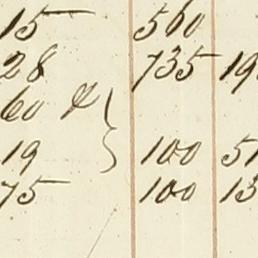 15 560
28 735 19
60 &
19 100 51
75 100 13